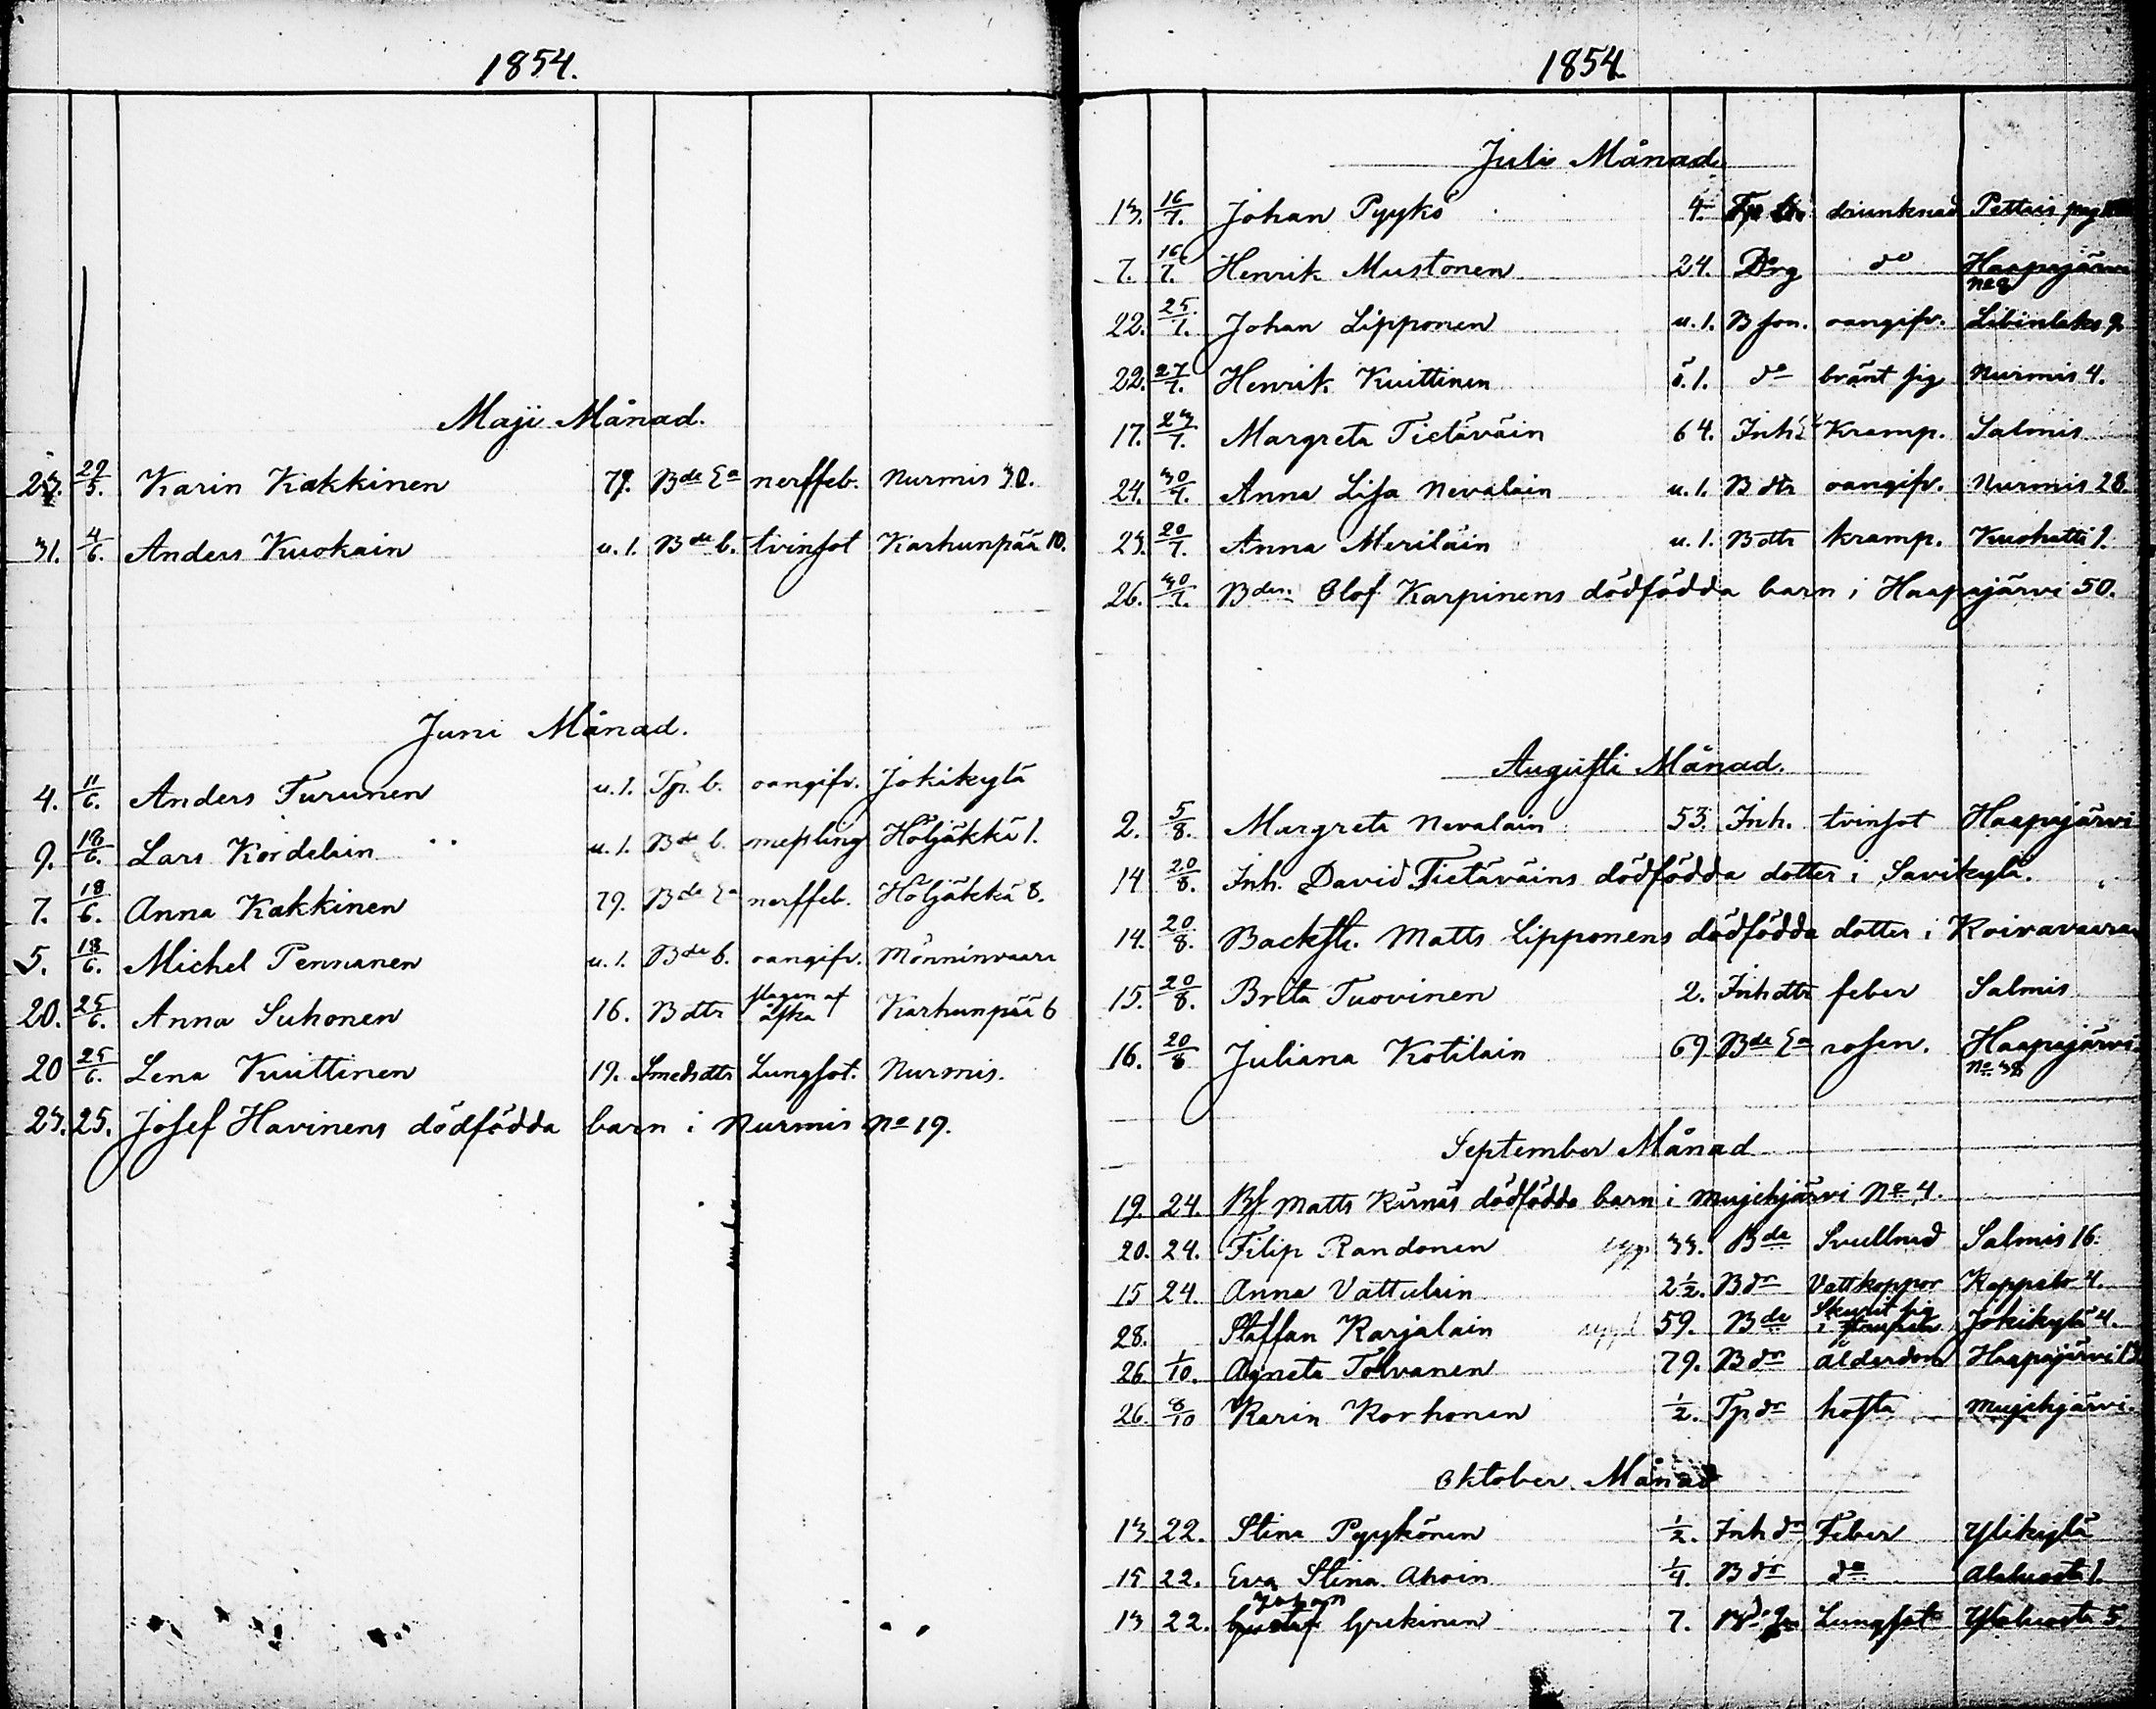 1854.
Maji Månad.
23. 29/5. Karin Kakkinen 79. Bde Ea nerffeb. Nurmis 30.
31. 4/6. Anders Kuokain u. 1. Bde b. tvinsot Karhunpää 10.
Juni Månad.
4. 11/6. Anders Turunen u. 1. Tp. b. oangifv. Jokikylä
9. 18/6. Lars Kordelain u. 1. Bde b. messling Höljäkkä 1.
7. 18/6. Anna Kakkinen 79. Bde Ea nerffeb. Höljäkkä 8.
5. 18/6. Michel Pennanen u. 1. Bde b. oangifv. Mönninvaara
20. 25/6. Anna Suhonen 16. B dtr slagen af åska Karhunpää 6
20 25/6. Lena Kuittinen 19. Smedsdtr Lungsot. Nurmis.
23. 25. Josef Havinens dödfödda barn i Nurmis No 19.
1854.
Julii Månad
13. 16/7. Johan Pyykö 4. drunknad Pettais
7. 16/7. Henrik Mustonen 24. Drg do Haapajärvi
22. 25/7. Johan Lipponen u. 1. B son. oangifv. Libinlaks 9.
22. 27/7. Henrik Kuittinen ö. 1. do bränt sig Nurmis 4.
17. 23/7. Margreta Tietäväin 64. Inh. Kramp. Salmis
24. 30/7. Anna Lisa Nevalain u. 1. B dtr oangifv. Nurmis 28.
23. 20/7. Anna Meriläin u. 1. B dtr kramp. Kuohatti 1.
26. 30/7. Bden Olof Karpinens dödfödda barn i Haapajärvi 50.
Augusti Månad.
2. 5/8. Margreta Nevalain 53. Inh. tvinsot Haapajärvi
14 20/8. Inh. David Tietäväins dödfödda dotter i Savikylä.
14. 20/8. Backst. Matts Lipponens dödfödda dotter i Koivavaara
15. 20/8. Brita Tuovinen 2. Inh dtr feber Salmis
16. 20/8 Juliana Kotilain 69 Bde Ea rosen. Haapajärvi No 38
September Månad
19. 24. Bf Matts Kärnäs dödfödda barn i Mujehjärvi No 4.
20. 24. Filip Randonen 33. Bde Svullnad Salmis 16.
15 24. Anna Vattulain 2 1/2. B dr Vattkoppor Koppelo 4.
28. Staffan Karjalain 59. Bde Skurit sig i Jokikylä 4.
26 1/10. Agneta Tolvanen 79. B dr ålderdom Haapajärvi 13
26. 8/10 Karin Korhonen 1/2. Tp dr hosta Mujehjärvi.
Oktober Månad
13 22. Stina Pyykönen 1/2. Inh dr Feber Ylikylä
15 22. Eva Stina Ahoin 1/4. B dr do Alaluosta 1.
13 22. Johan Gustaf Grekinen 7. Lungsot Ylaluosta 5.